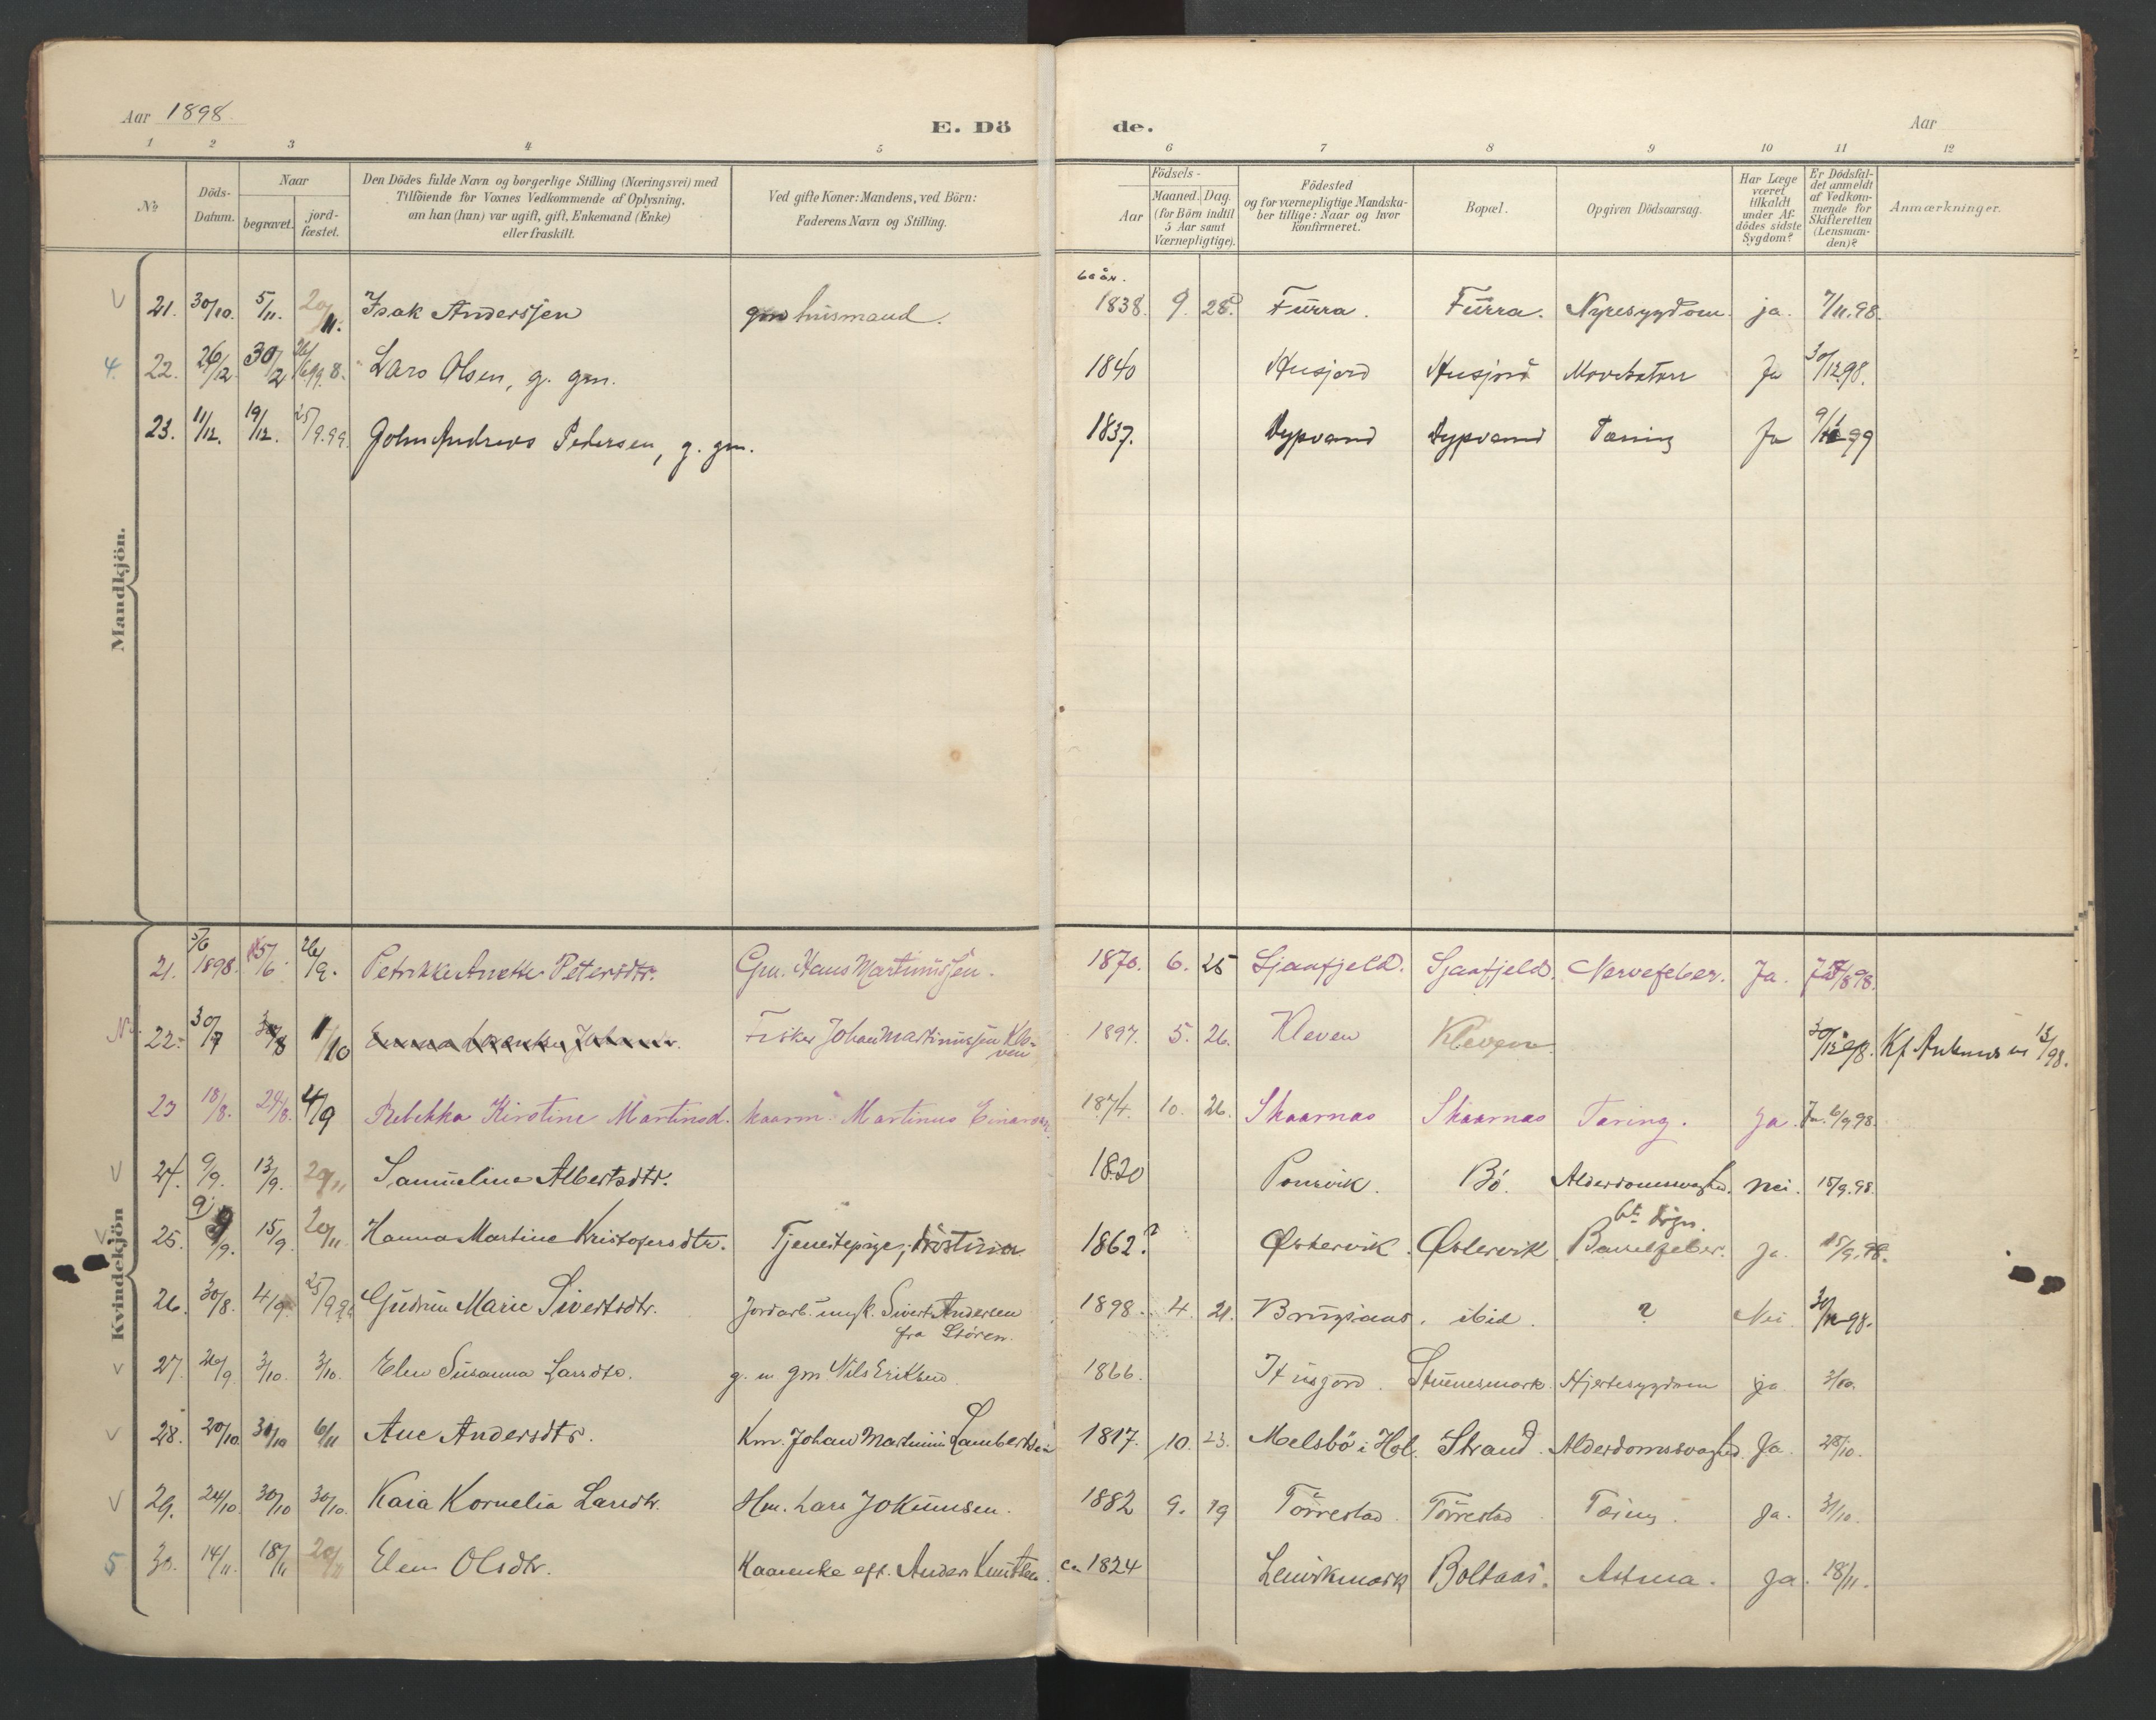 Aar 1898.
E. Dö de.
Aar
1 2 3 4 5 6 7 8 9 10 11 12
№
Döds-Datum.
Naar
begravet.
jord-fæstet.
Den Dödes fulde Navn og borgerlige Stilling (Næringsvei) med
Tilföiende for Voxnes Vedkommende af Oplysning,
om han (hun) var ugift, gift, Enkemand (Enke)
eller fraskilt.
Ved gifte Koner: Mandens, ved Börn:
Faderens Navn og Stilling.
Födsels-
Aar
Maaned. Dag.
(for Börn indtil
5 Aar samt
Værnepligtige).
Födested
og for værnepligtige Mandska-
ber tillige: Naar og hvor
konfirmeret.
Bopæl.
Opgiven Dödsaarsag.
Har Læge
været
tilkaldt
under Af-
dödes sidste
Sygdom?
Er Dödsfal-
det anmeldt
af Vedkom-
mende for
Skifteretten
(Lensman-
den)?
Anmærkninger.
Mandkjön.
60 år.
21. 30/10. 5/11. 20/11. Isak Anderssen husmand. 1838. 9. 28. Furra. Furra. Nyresygdom. ja. 7/11.98.
4. 22. 26/12 30/12 Lars Olsen, g. gm. 1840 Husjord Husjord Ja 30/12 98.
23. 11/12. 19/12. 25/9.99. John Andreas Pedersen, g. gm. 1837. Dypvand Dypvand Tæring Ja 99
Kvindekjön
21. 5/6 1898. 15/6. 26/9. Petrikke Anette Petersdtr. Gm. Hans Martinussen. 1870. 6. 25 Sjaafjeld. Sjaafjeld. Nervefeber. Ja.
22. 30/7 1/10 Fisker Johan Martinussen Kleven 1897. 5. 26. Kleven Kleven.
23 18/8. 24/8. 4/9 Rebekka Kirstine Martinsd. kaarm. Martinus Einarsen. 1874. 10. 26. Skaarnas Skaarnas Tæring. Ja. Ja. 6/9 98.
24. 9/9. 13/9. 20/11 Samueline Albertsdtr. 1820 Ponsvik. Bö. Alderdomssvaghed. nei. 15/9.98.
25. 9/9. 15/9. 20/11 Hanna Martine Kristofersdtr. Tjenestepige, 1862? Østervik. Østervik. Barselfeber. ja. 15/9.98.
26. 30/8. 4/9. 25/9 99 Gudrun Marie Sivertsdtr. Jordarb. ungk. Sivert Andersen
fra Stören. 1898. 4. 21. ibid. ? Nei
27. 26/9. 3/10. 3/10. Elen Susanna Larsdtr. g. m gm. Nils Eriksen 1866. Husjord. Stunesmark. Hjertesygdom ja 3/10.
28. 20/10. 30/10 6/11 Ane Andersdtr. Km. Johan Martinus Lambertsen 1817. 10. 23. Melsbö i Hol. Strand. Alderdomssvaghed. Ja. 28/10.
29. 24/10. 30/10 30/10. Kaia Kornelia Larsdtr. Hm. Lars Jokumsen. 1882 9. 19 Törrestad. Törrestad. Tæring. Ja. 31/10.
5 30. 14/11. 18/11 20/11 Elen Olsdtr. Kaarenke eft. Anders Knutsen. ca 1824 Lenvikmark Boltaas. Astma. Ja. 18/11.